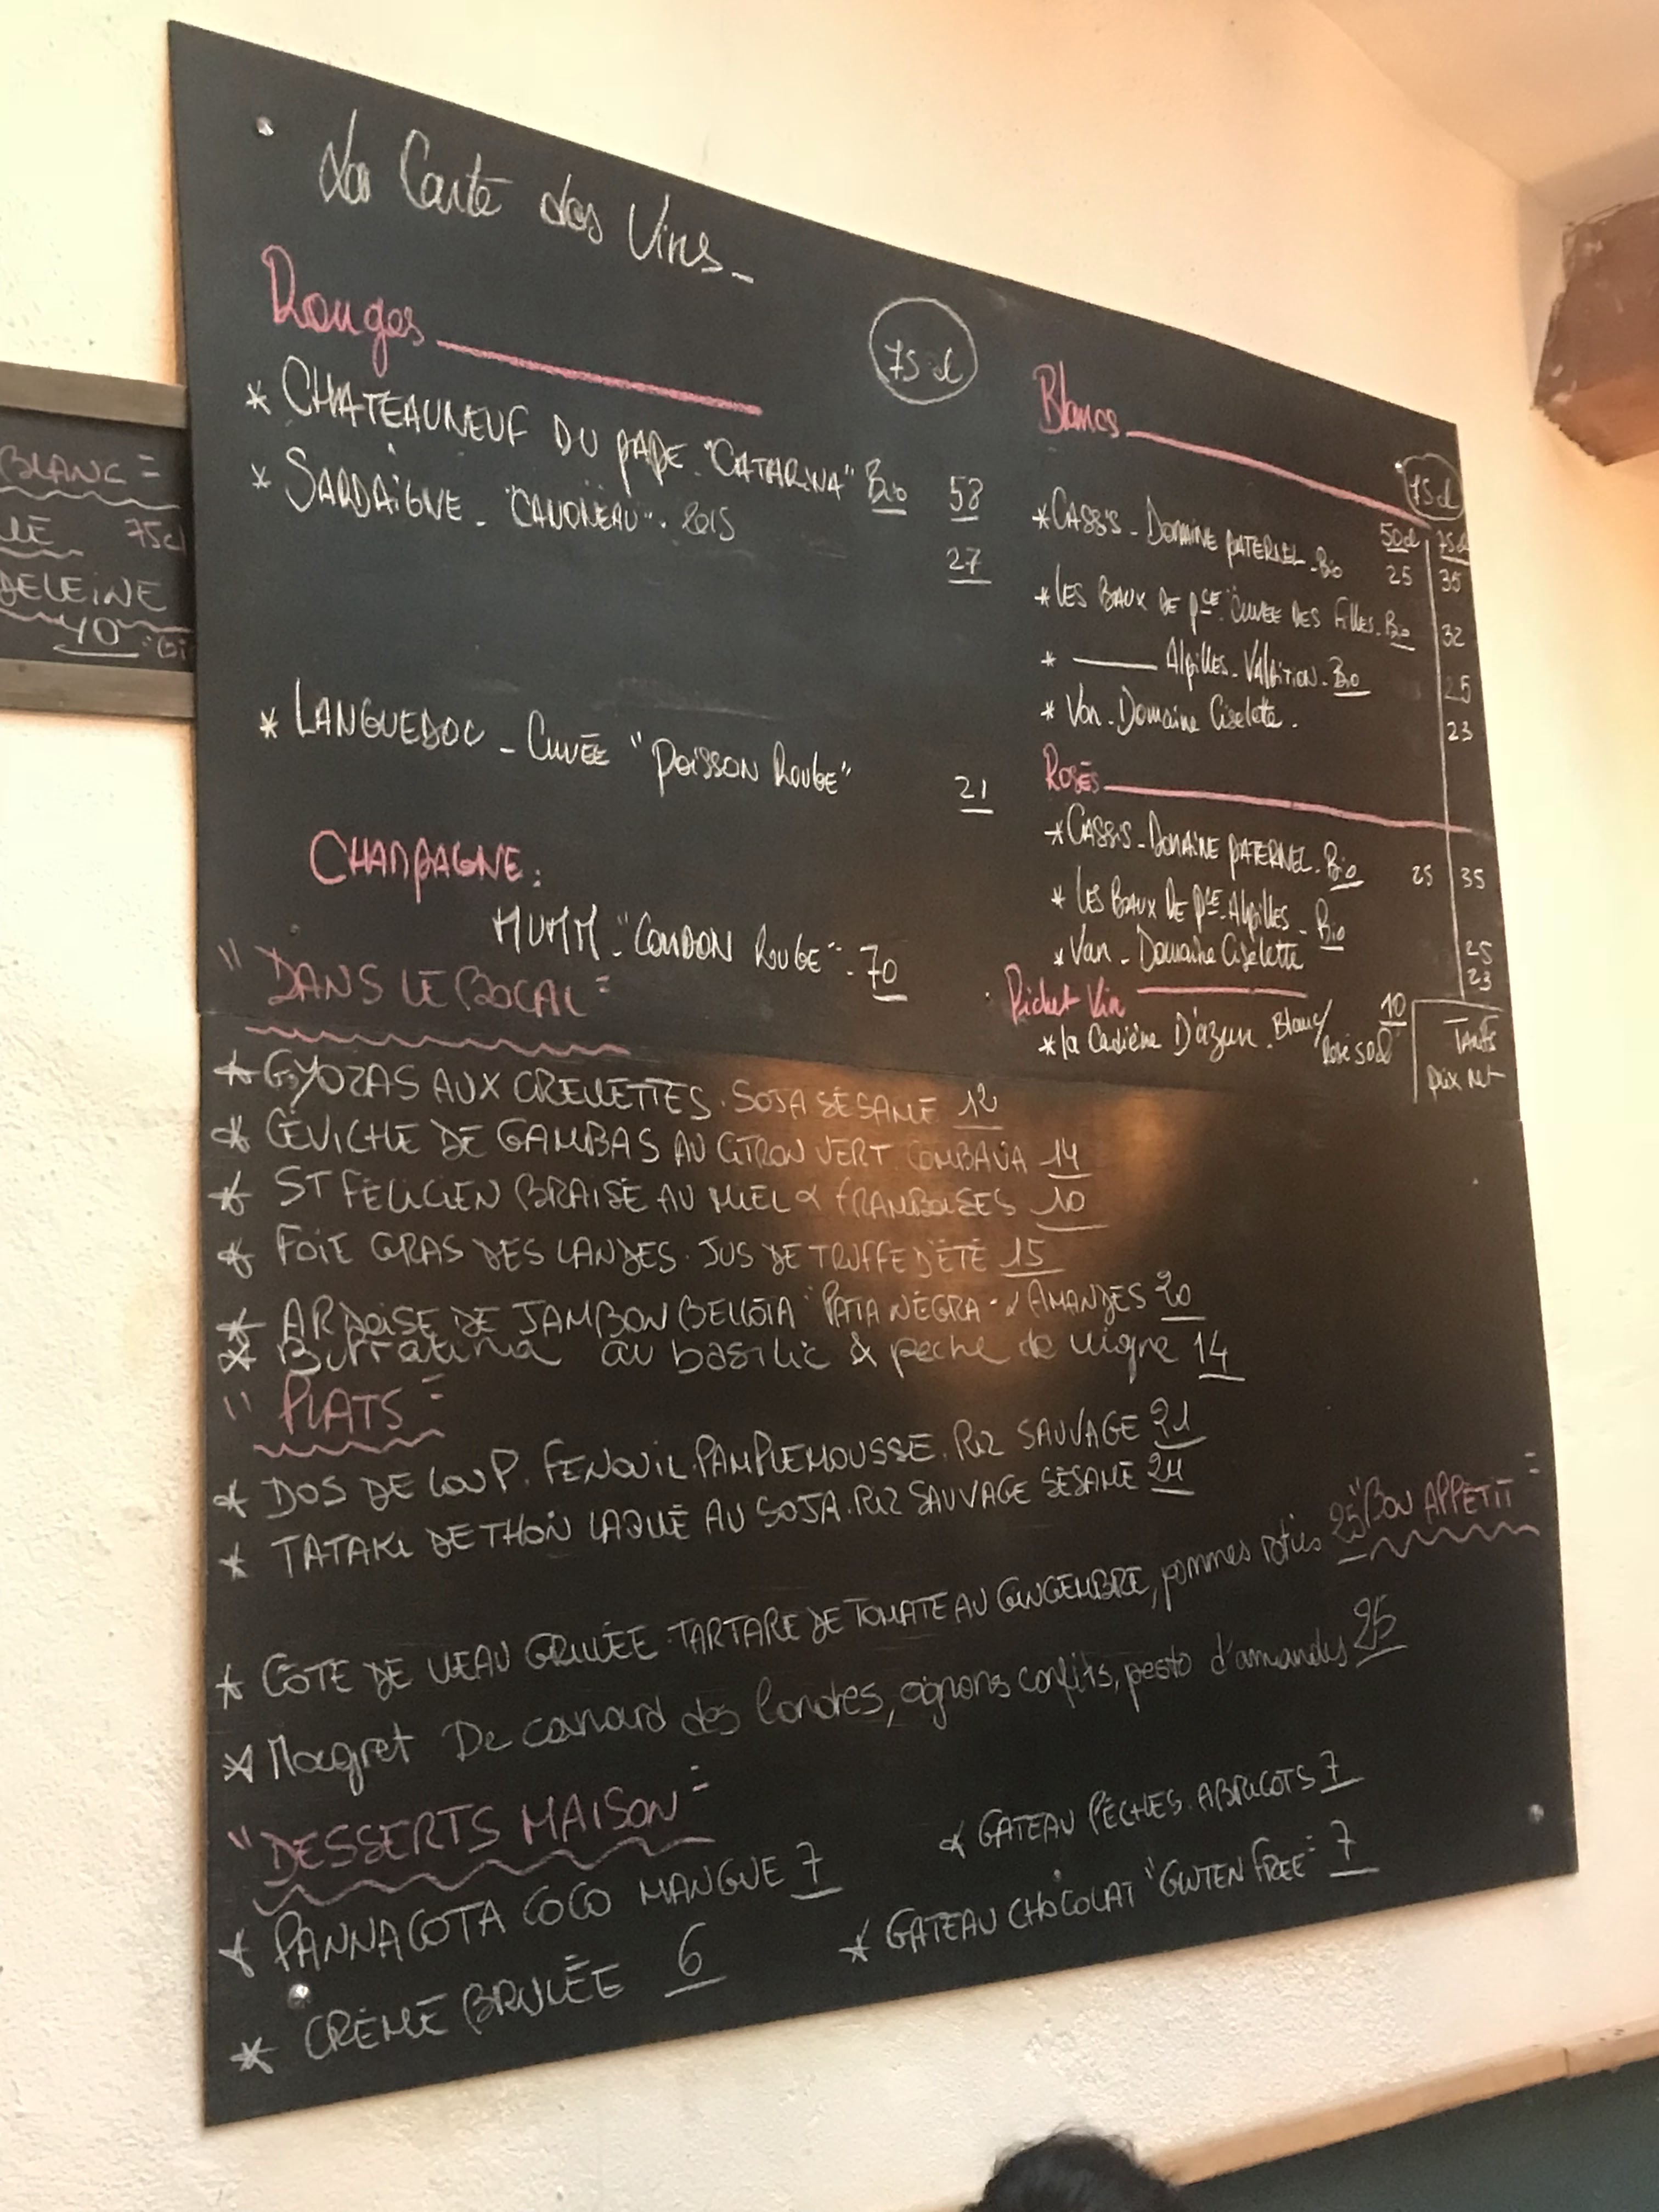 La Carte des Vins_
Rouges
75 cl
* CHATEAUNEUF DU PAPE. "CATARINA" Bio 58
* SARDAIGNE - 2015
27
* LANGUEDOC - CUVÉE "POISSON ROUGE"
21
CHAMPAGNE:
MUMM. "CORDON ROUGE". 70
Blancs
75 cl
50cl 75cl
* CASSIS - DOMAINE PATERNEL - Bio 25 35
* LES BAUX DE PCE. CUVÉE DES FILLES. Bio 32
* —— Alpilles - Valdition - Bio 25
* Var - Domaine Ciselette. 23
ROSÉS
* CASSIS - DOMAINE PATERNEL. Bio 25 35
* LES BAUX DE PCE - Alpilles - Bio 25
* Var - Domaine Ciselette 23
Pichet Vin
* la Cadière D'azur. Blanc/ Rosé 50cl 10
Tarifs
Prix Net
"DANS LE BOCAL"
* GYOZAS AUX CREVETTES. SOJA SÉSAME 12
* CEVICHE DE GAMBAS AU CITRON VERT COMBAVA 14
* ST FÉLICIEN BRAISÉ AU MIEL & FRAMBOISES 10
* FOIE GRAS DES LANDES. JUS DE TRUFFE D'ÉTÉ 15
* ARDOISE DE JAMBON BELLOTA "PATA NEGRA" & AMANDES 20
* Burratina au basilic & pêche de vigne 14
"PLATS"
* DOS DE LOUP. FENOUIL. PAMPLEMOUSSE. RIZ SAUVAGE 21
* TATAKI DE THON LAQUÉ AU SOJA. RIZ SAUVAGE SÉSAME 24
"BON APPÉTIT"
* CÔTE DE VEAU GRILLÉE. TARTARE DE TOMATE AU GINGEMBRE, pommes roties 25
* Magret De canard des landes, oignons confits, pesto d'amandes 25
"DESSERTS MAISON"
* PANNACOTA COCO MANGUE 7
* CRÈME BRULÉE 6
* GATEAU PÊCHES. ABRICOTS 7
* GATEAU CHOCOLAT "GLUTEN FREE" 7
BLANC =
75cl
DELEINE
40